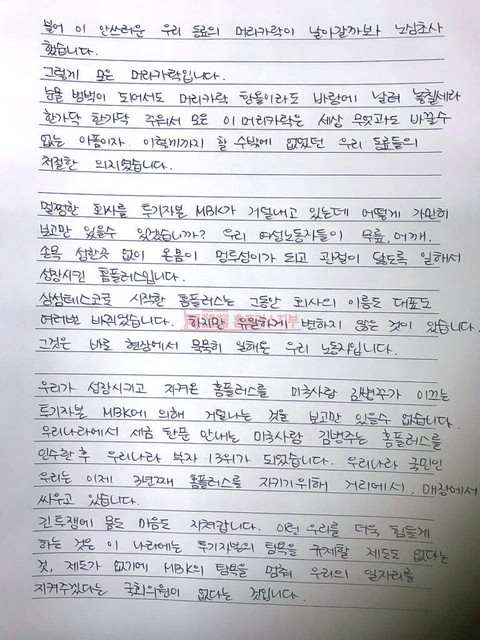 불어 이 안쓰러운 우리 동료의 머리카락이 날아갈까봐 노심초사
했습니다.
그렇게 모은 머리카락입니다.
눈물 범벅이 되어서도 머리카락 한올이라도 바람에 날려 놓칠세라
한가닥 한가닥 주워서 모은 이 머리카락은 세상 무엇과도 바꿀수
없는 아픔이자. 이렇게까지 할 수밖에 없었던 우리 동료들의
처절한 의지였습니다.
멀쩡한 회사를 투기자본 MBK가 거덜내고 있는데 어떻게 가만히
보고만 있을수 있겠습니까? 우리 여성노동자들이 무릎, 어깨,
손목 성한곳 없이 온몸이 멍투성이가 되고 관절이 닳도록 일해서
성장시킨 홈플러스입니다.
삼성테스코로 시작한 홈플러스는 그동안 회사의 이름도 대표도
여러번 바뀌었습니다. 하지만 유일하게 변하지 않은 것이 있습니다.
그것은 바로 현장에서 묵묵히 일해온 우리 노동자입니다.
우리가 성장시키고 지켜온 홈플러스를 미국사람 김병주가 이끄는
투기자본 MBK에 의해 거덜나는 것을 보고만 있을수 없습니다.
우리나라에서 세금 한푼 안내는 미국사람 김병주는 홈플러스를
인수한 후 우리나라 부자 13위가 되었습니다. 우리나라 국민인
우리는 이제 3년째 홈플러스를 지키기위해 거리에서, 매장에서
싸우고 있습니다.
긴투쟁에 몸도 마음도 지쳐갑니다. 이런 우리를 더욱 힘들게
하는 것은 이 나라에는 투기자본의 탐욕을 규제할 제도도 없다는
것, 제도가 없기에 MBK의 탐욕을 멈춰 우리의 일자리를
지켜주겠다는 국회의원이 없다는 것입니다.